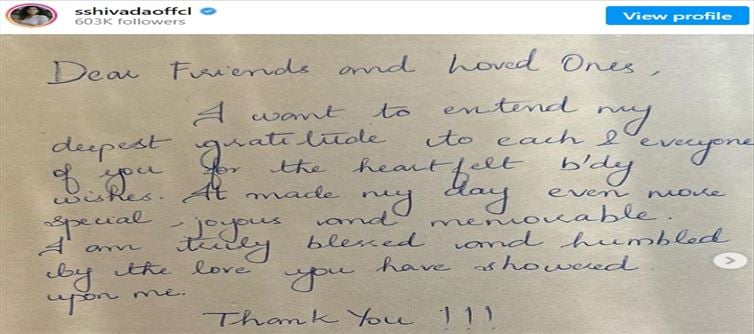 sshivadaoffcl
603K followers
View profile
Dear Friends and Loved Ones,
I want to extend my
deepest gratitude to each & everyone
of you for the heartfelt b'dy
wishes. It made my day even more
special, joyous and memorable.
I am truly blessed and humbled
by the love you have showered
upon me.
Thank You !!!